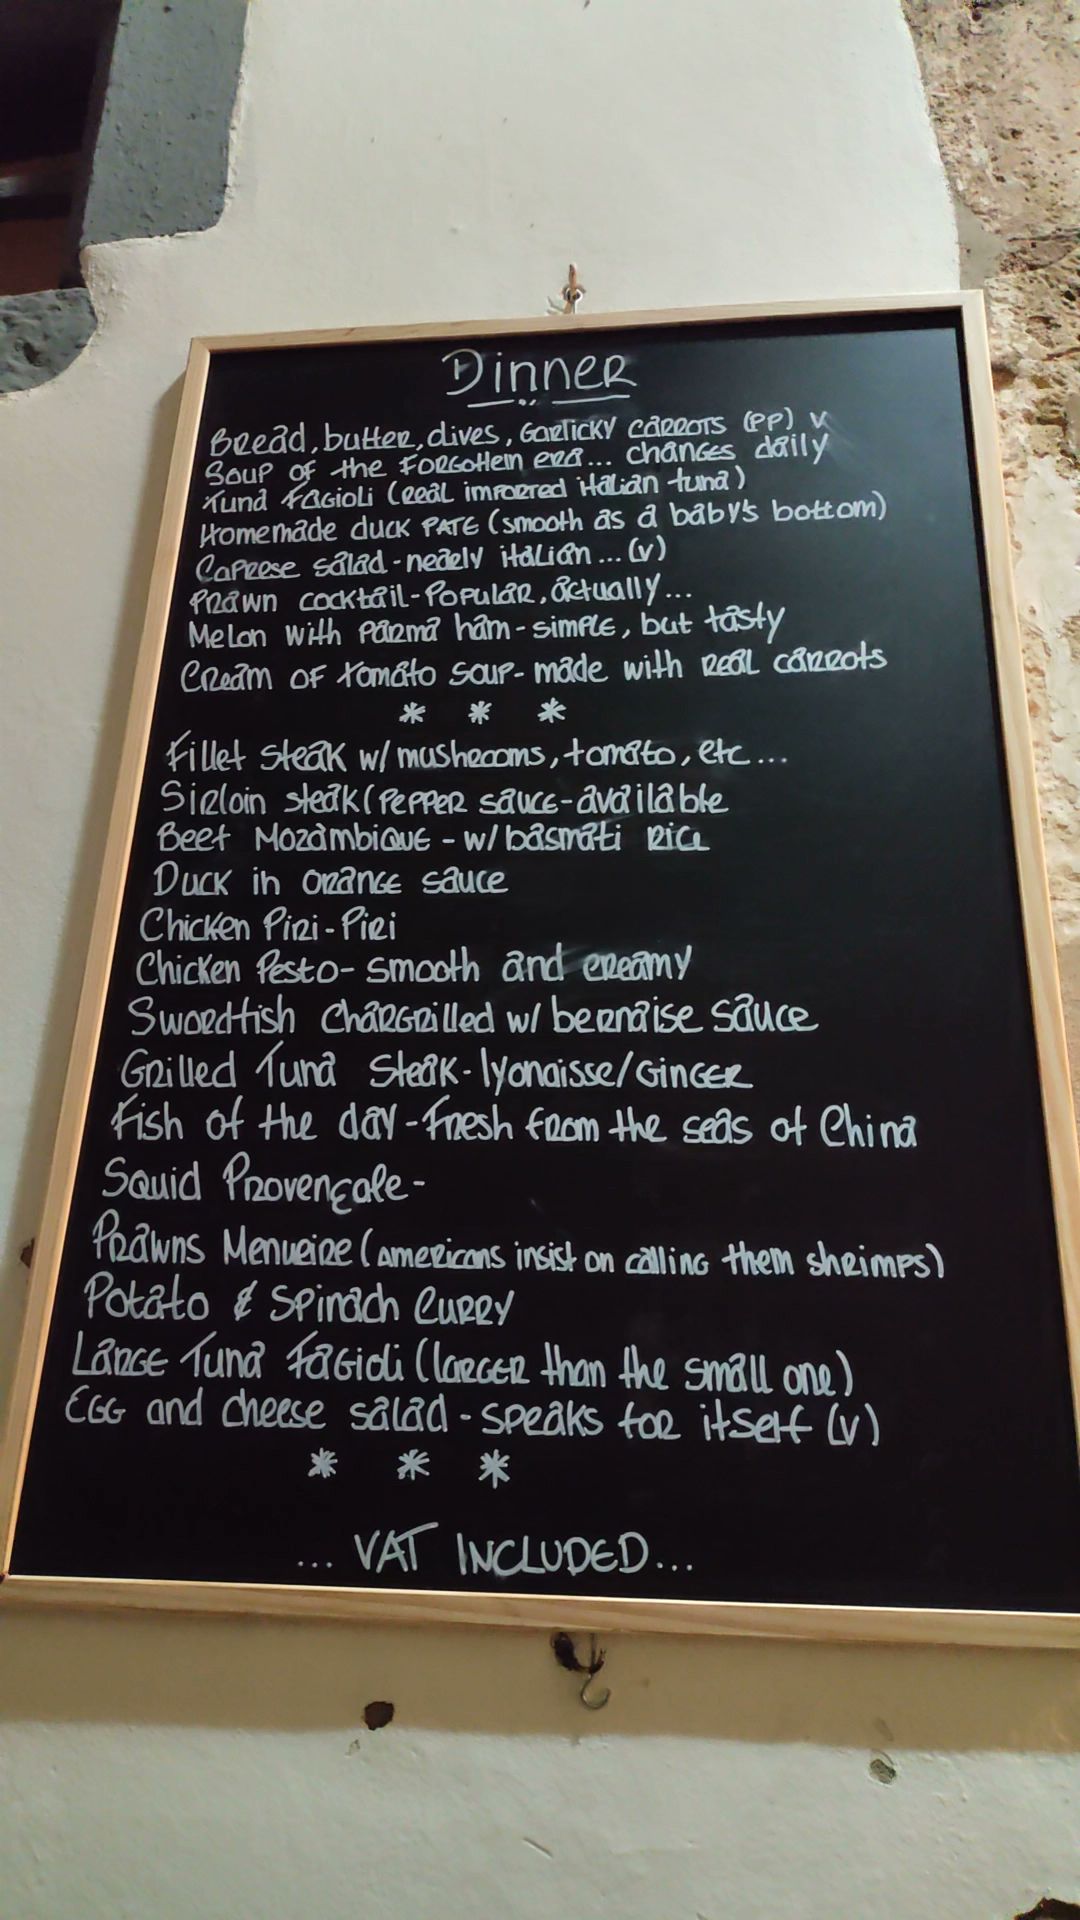 Dinner
Bread, butter, olives, Garlicky carrots (PP) v
Soup of the Forgottein era... changes daily
Tuna Fagioli (real imported italian tuna)
Homemade duck PATE (smooth as a baby's bottom)
Caprese salad - nearly italian... (v)
Prawn cocktail - Popular, actually...
Melon with Parma ham - simple, but tasty
Cream of tomato soup - made with real carrots
* * *
Fillet steak w/ mushrooms, tomato, etc...
Sirloin steak (Pepper sauce - available
Beef Mozambique - w/ basmati rice
Duck in orange sauce
Chicken Piri-Piri
Chicken Pesto - smooth and creamy
Swordfish chargrilled w/ bernaise sauce
Grilled Tuna Steak - lyonaisse/Ginger
Fish of the day - Fresh from the seas of China
Squid Provençale -
Prawns Menueire (americans insist on calling them shrimps)
Potato & Spinach Curry
Large Tuna Fagioli (larger than the small one)
Egg and cheese salad - speaks for itself (v)
* * *
... VAT INCLUDED...